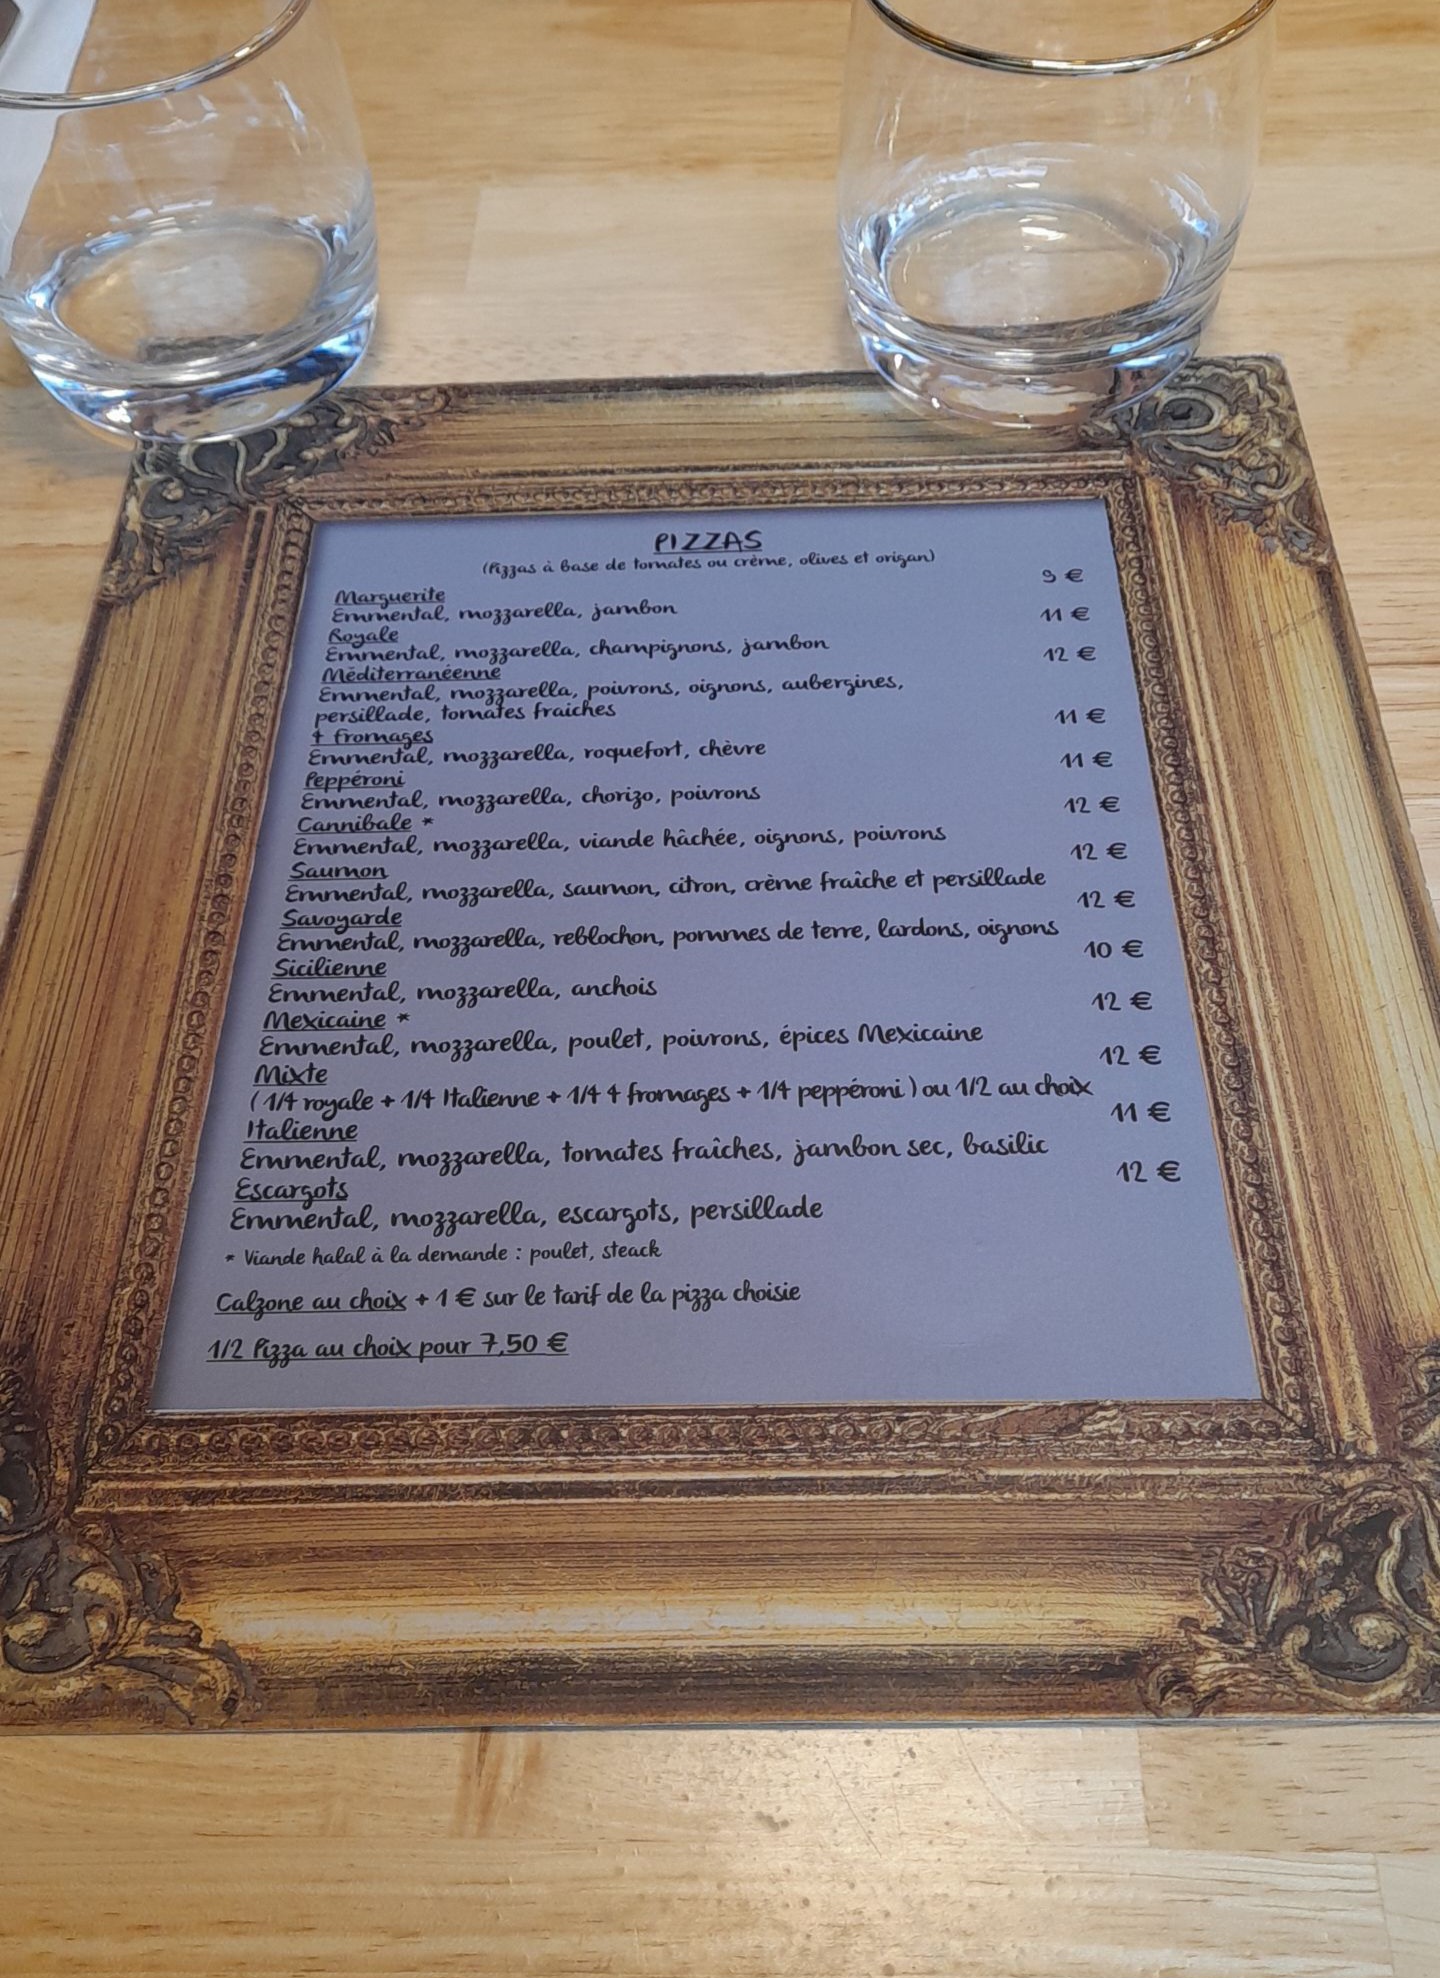 PIZZAS
(Pizzas à base de tomates ou crème, olives et origan)
Marguerite 9 €
Emmental, mozzarella, jambon
Royale 11 €
Emmental, mozzarella, champignons, jambon
Méditerranéenne 12 €
Emmental, mozzarella, poivrons, oignons, aubergines,
persillade, tomates fraiches
4 fromages 11 €
Emmental, mozzarella, roquefort, chèvre
Peppéroni 11 €
Emmental, mozzarella, chorizo, poivrons
Cannibale * 12 €
Emmental, mozzarella, viande hâchée, oignons, poivrons
Saumon 12 €
Emmental, mozzarella, saumon, citron, crème fraîche et persillade
Savoyarde 12 €
Emmental, mozzarella, reblochon, pommes de terre, lardons, oignons
Sicilienne 10 €
Emmental, mozzarella, anchois
Mexicaine * 12 €
Emmental, mozzarella, poulet, poivrons, épices Mexicaine
Mixte 12 €
(1/4 royale + 1/4 Italienne + 1/4 4 fromages + 1/4 peppéroni) ou 1/2 au choix
Italienne 11 €
Emmental, mozzarella, tomates fraîches, jambon sec, basilic
Escargots 12 €
Emmental, mozzarella, escargots, persillade
* Viande halal à la demande : poulet, steack
Calzone au choix + 1 € sur le tarif de la pizza choisie
1/2 Pizza au choix pour 7,50 €